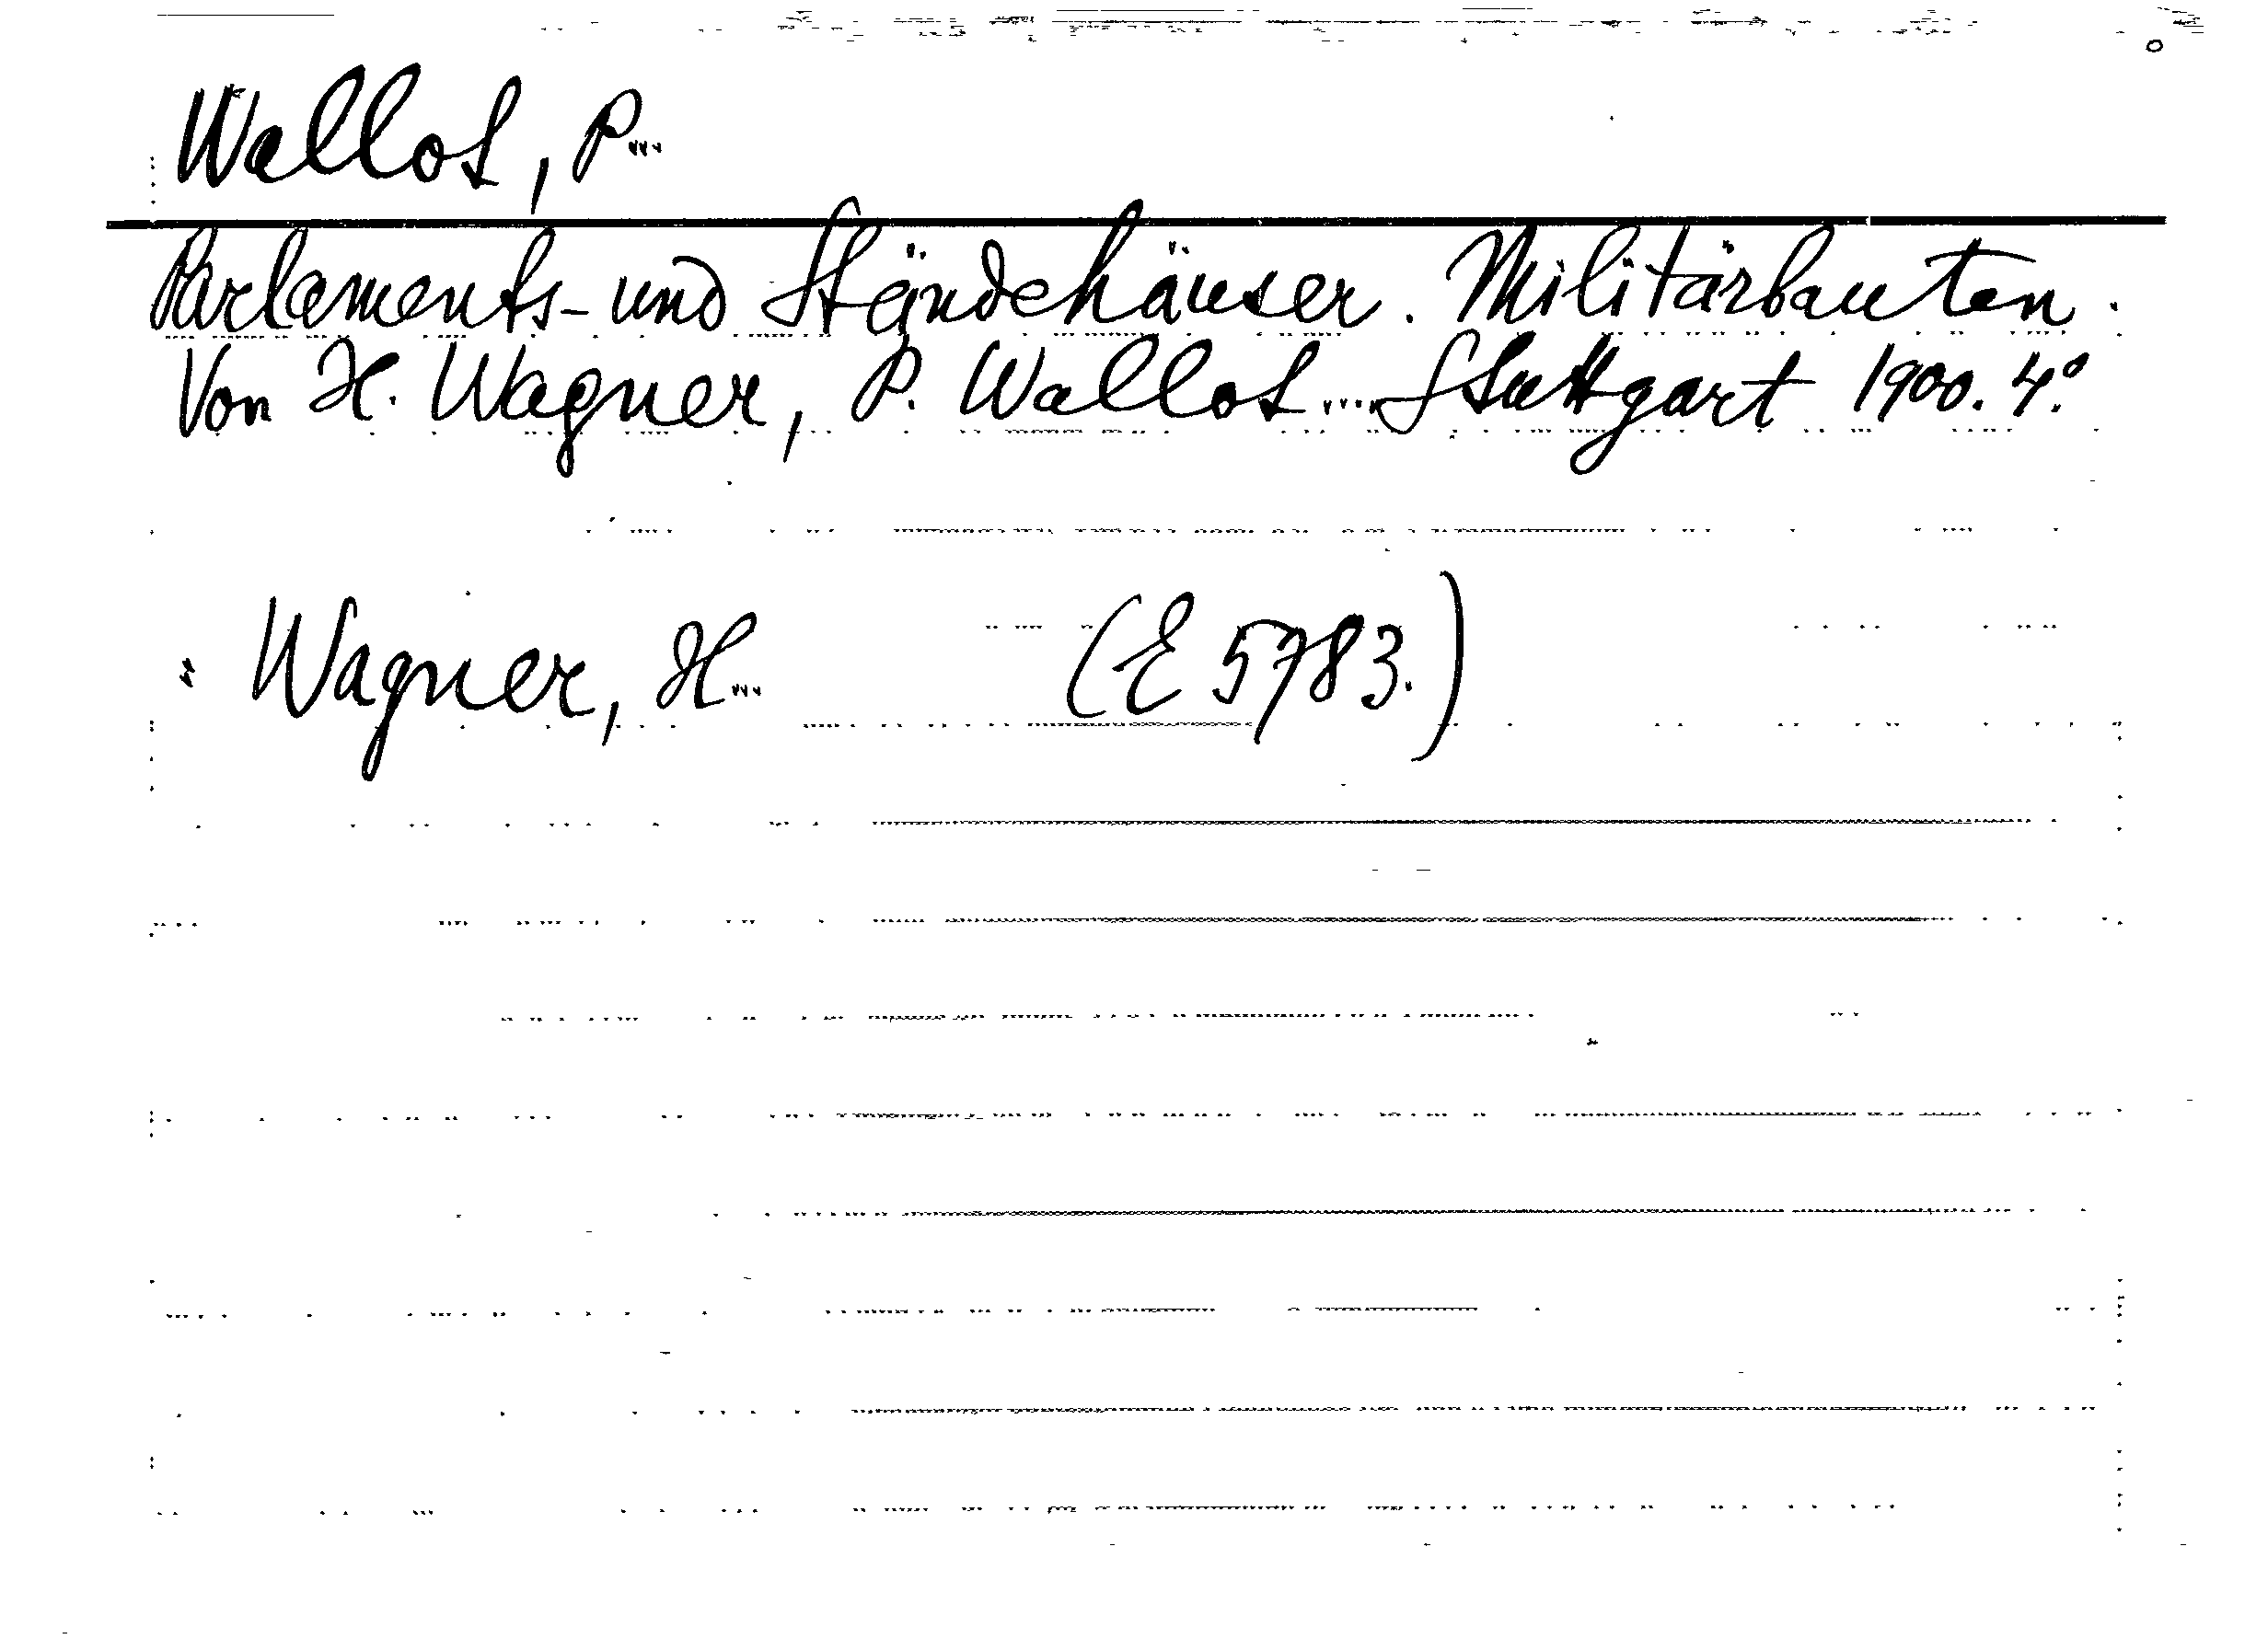 Wallot, P...
Parlaments- und Ständehäuser. Militärbauten.
Von H. Wagner, P. Wallot.... Stuttgart 1900. 4.°
: Wagner, H... (E 5783.)